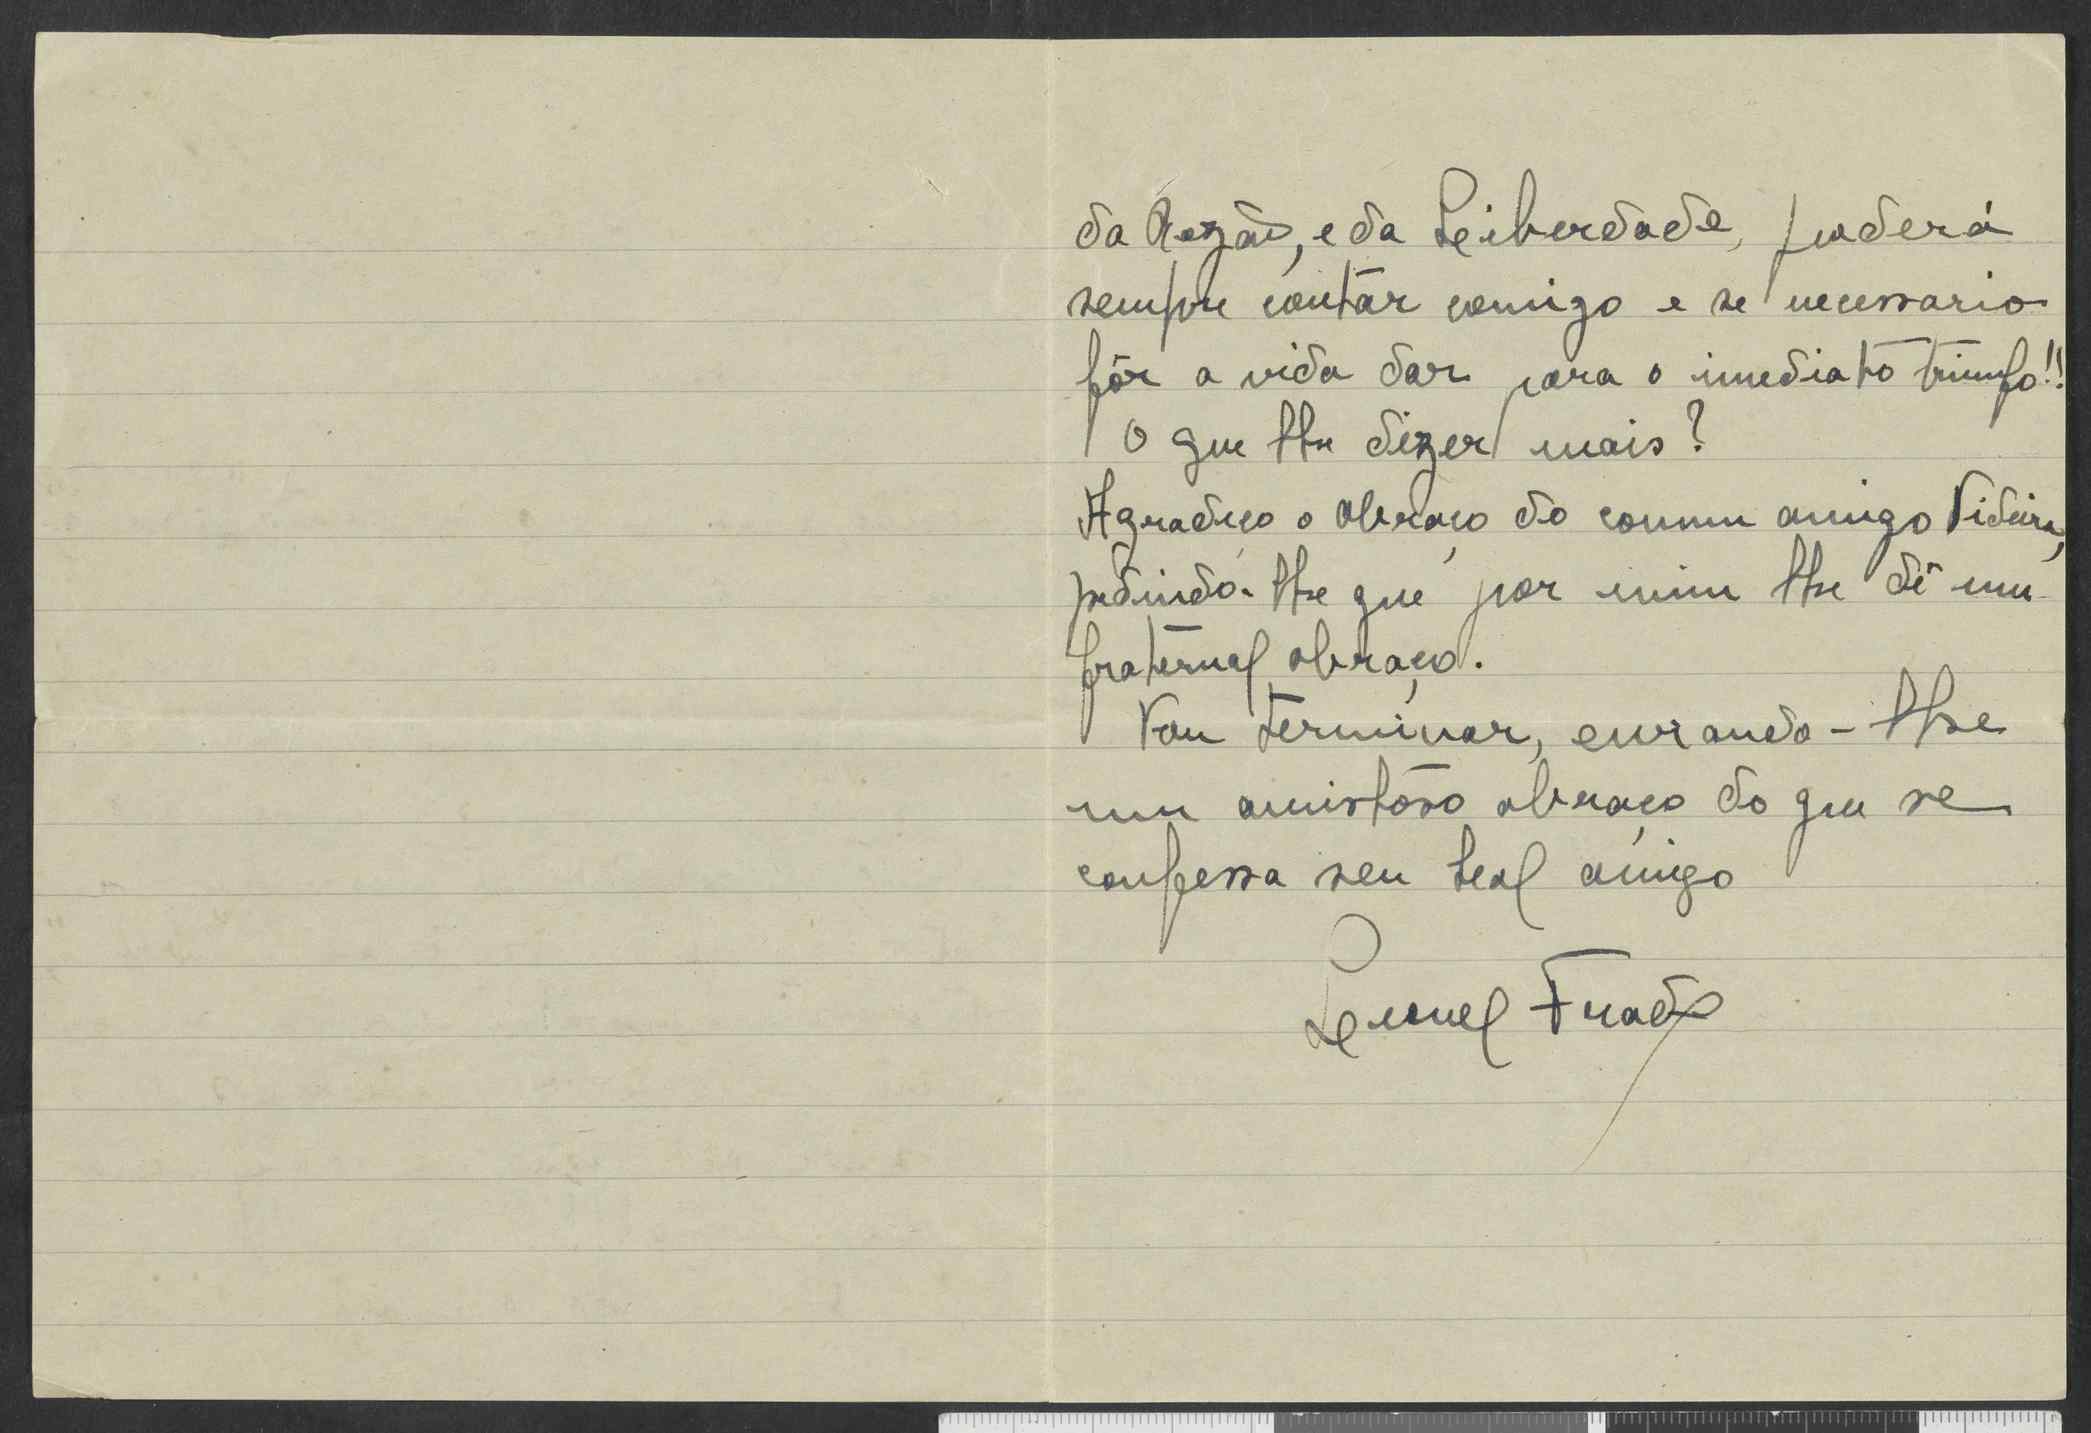 da Razão, e da Leiberdade, poderá
sempre contar comigo e se necessario
fôr a vida dar para o imediato triunfo!!
O que lhe dizer mais?
Agradeço o abraço do comum amigo Videira,
pedindo-lhe que por mim lhe dê um
fraternal abraço.
Vou terminar, enviando-lhe
um amistoso abraço do que se
confessa seu leal amigo
Leonel